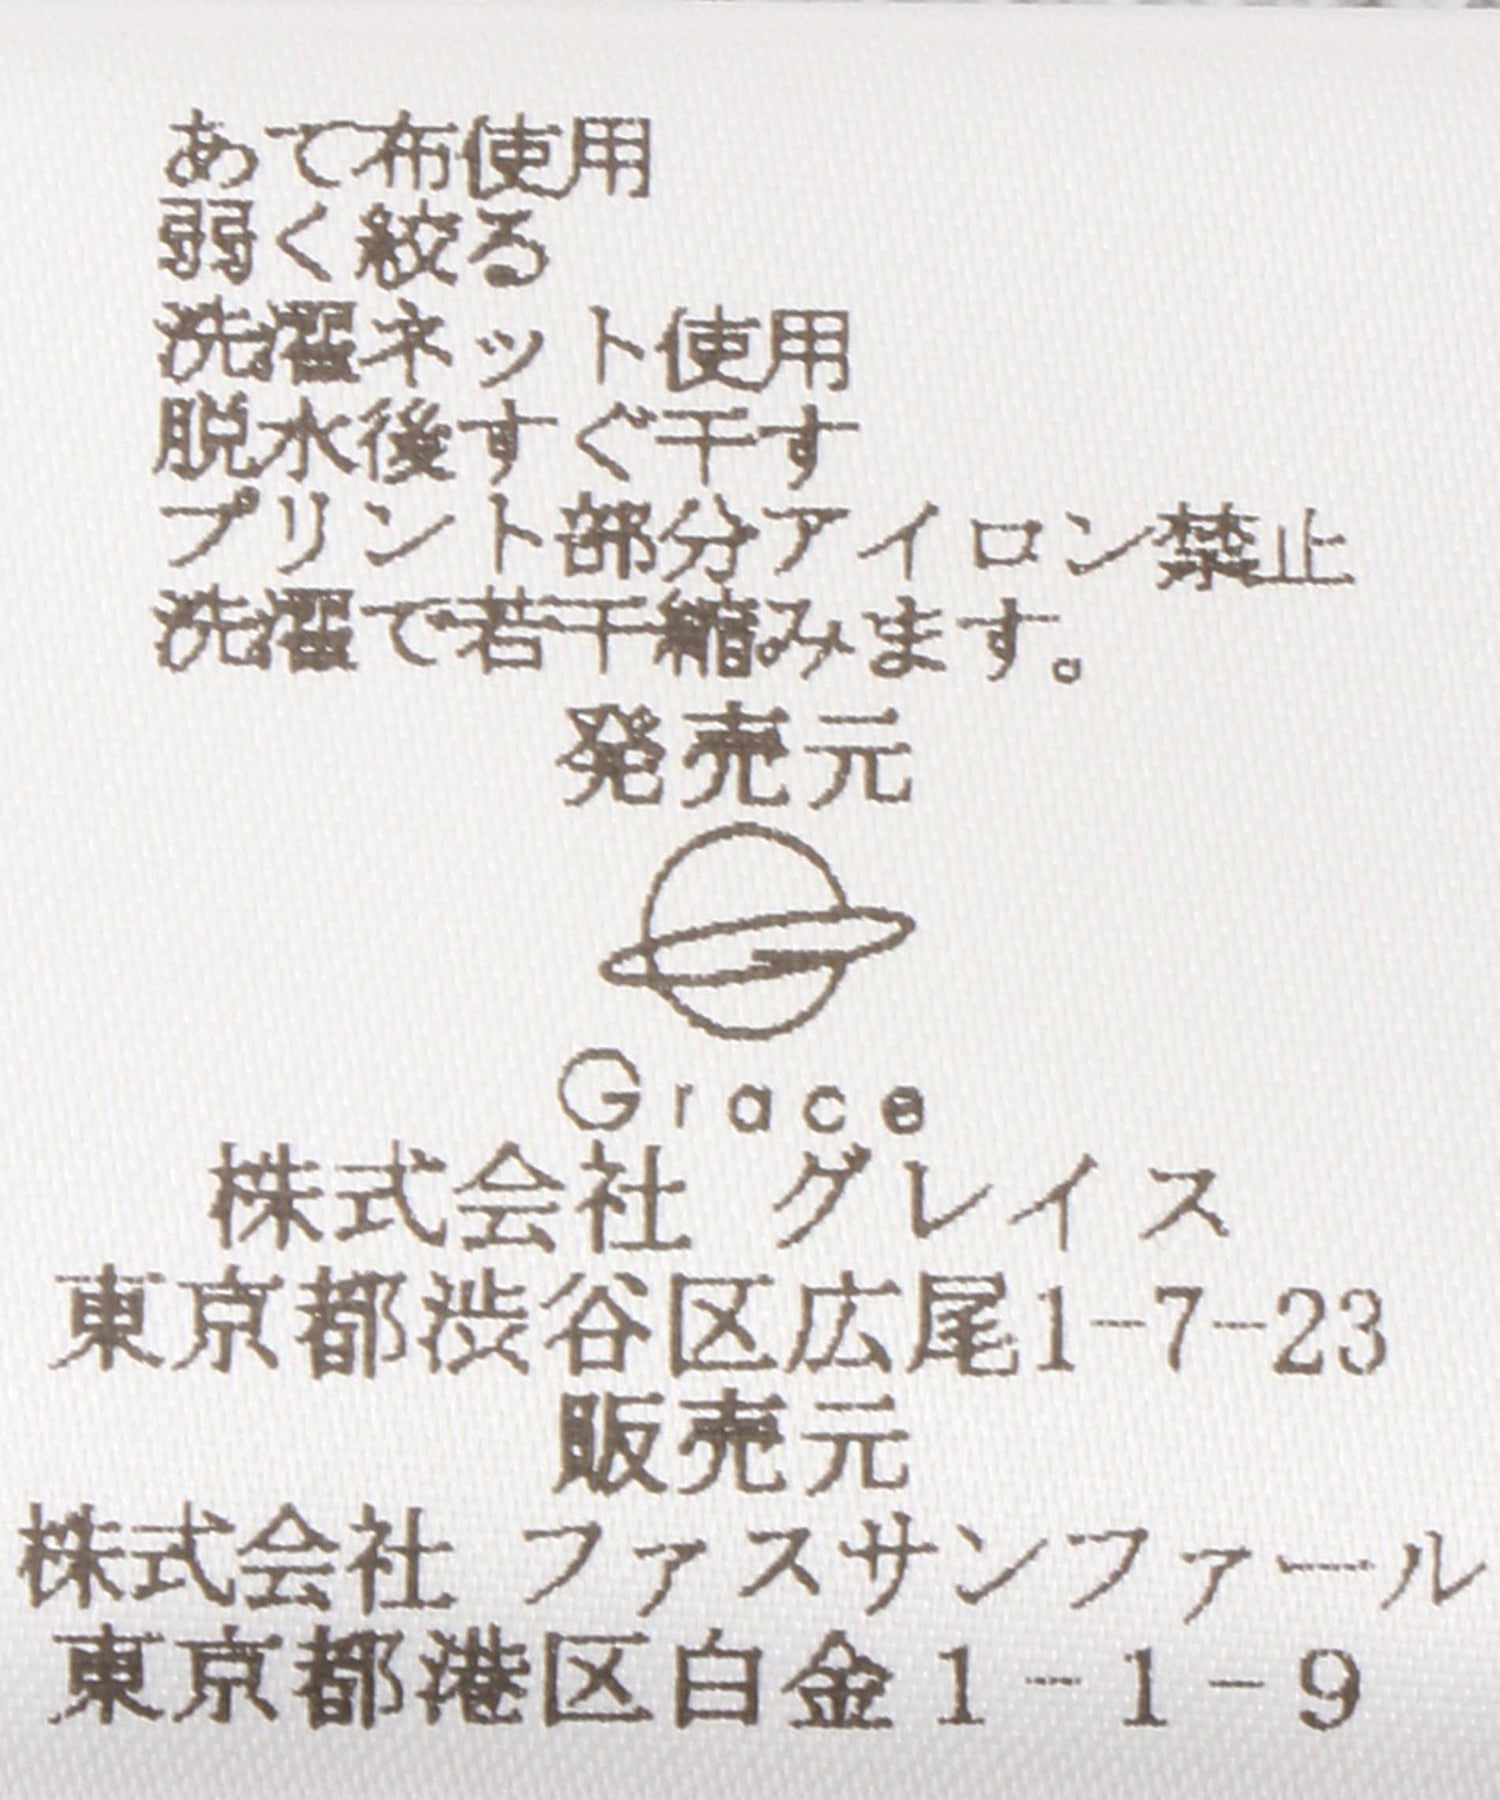 あて布使用
弱く絞る
洗濯ネット使用
脱水後すぐ干す
プリント部分アイロン禁止
洗濯で若干縮みます。
発売元
Grace
株式会社 グレイス
東京都渋谷区広尾1-7-23
販売元
株式会社 ファスサンファール
東京都港区白金1-1-9